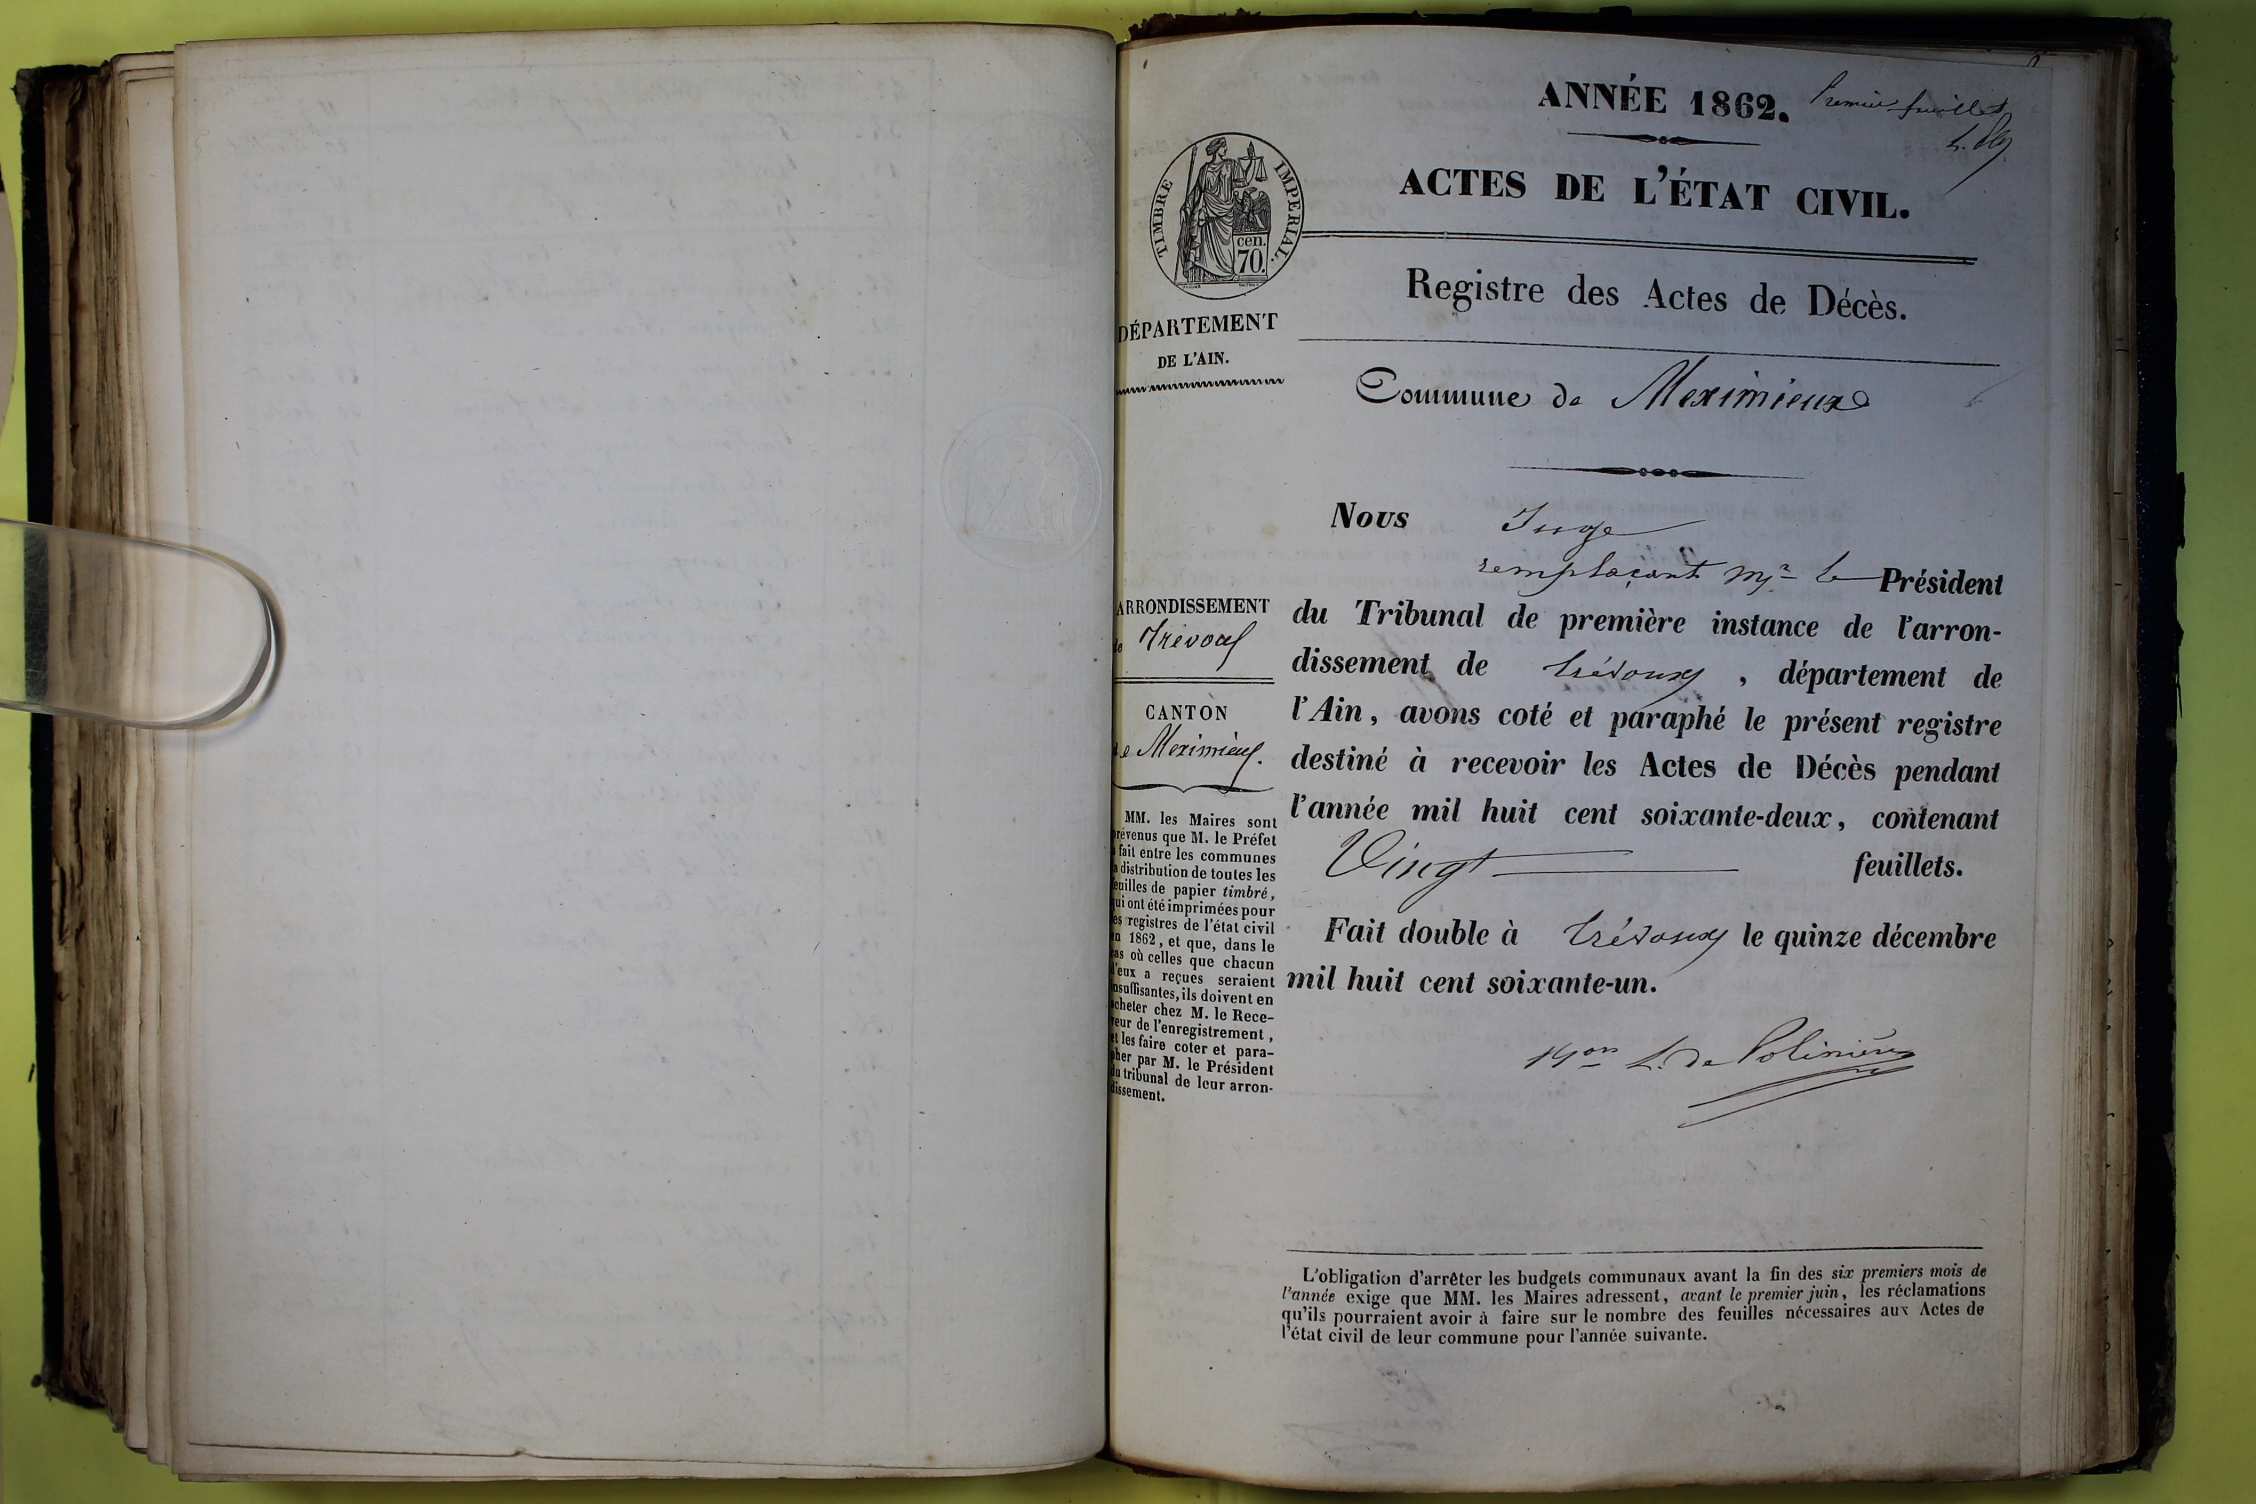 ANNÉE 1862.
Premier feuillet
ACTES DE L'ÉTAT CIVIL.
TIMBRE IMPERIAL.
cen.
70.
Registre des Actes de Décès.
DÉPARTEMENT
DE L'AIN.
Commune de Meximieux
Nous Juge
remplaçant Mr. le Président
du Tribunal de première instance de l'arron-
dissement de trévoux, département de
l'Ain, avons coté et paraphé le présent registre
destiné à recevoir les Actes de Décès pendant
l'année mil huit cent soixante-deux, contenant
Vingt feuillets.
Fait double à trévoux le quinze décembre
mil huit cent soixante-un.
L. de Polinière
ARRONDISSEMENT
de Trévoux
CANTON
de Meximieux.
MM. les Maires sont
prévenus que M. le Préfet
a fait entre les communes
la distribution de toutes les
feuilles de papier timbré,
qui ont été imprimées pour
les registres de l'état civil
en 1862, et que, dans le
cas où celles que chacun
d'eux a reçues seraient
insuffisantes, ils doivent en
acheter chez M. le Rece-
veur de l'enregistrement,
et les faire coter et para-
pher par M. le Président
du tribunal de leur arron-
dissement.
L'obligation d'arrêter les budgets communaux avant la fin des six premiers mois de
l'année exige que MM. les Maires adressent, avant le premier juin, les réclamations
qu'ils pourraient avoir à faire sur le nombre des feuilles nécessaires aux Actes de
l'état civil de leur commune pour l'année suivante.